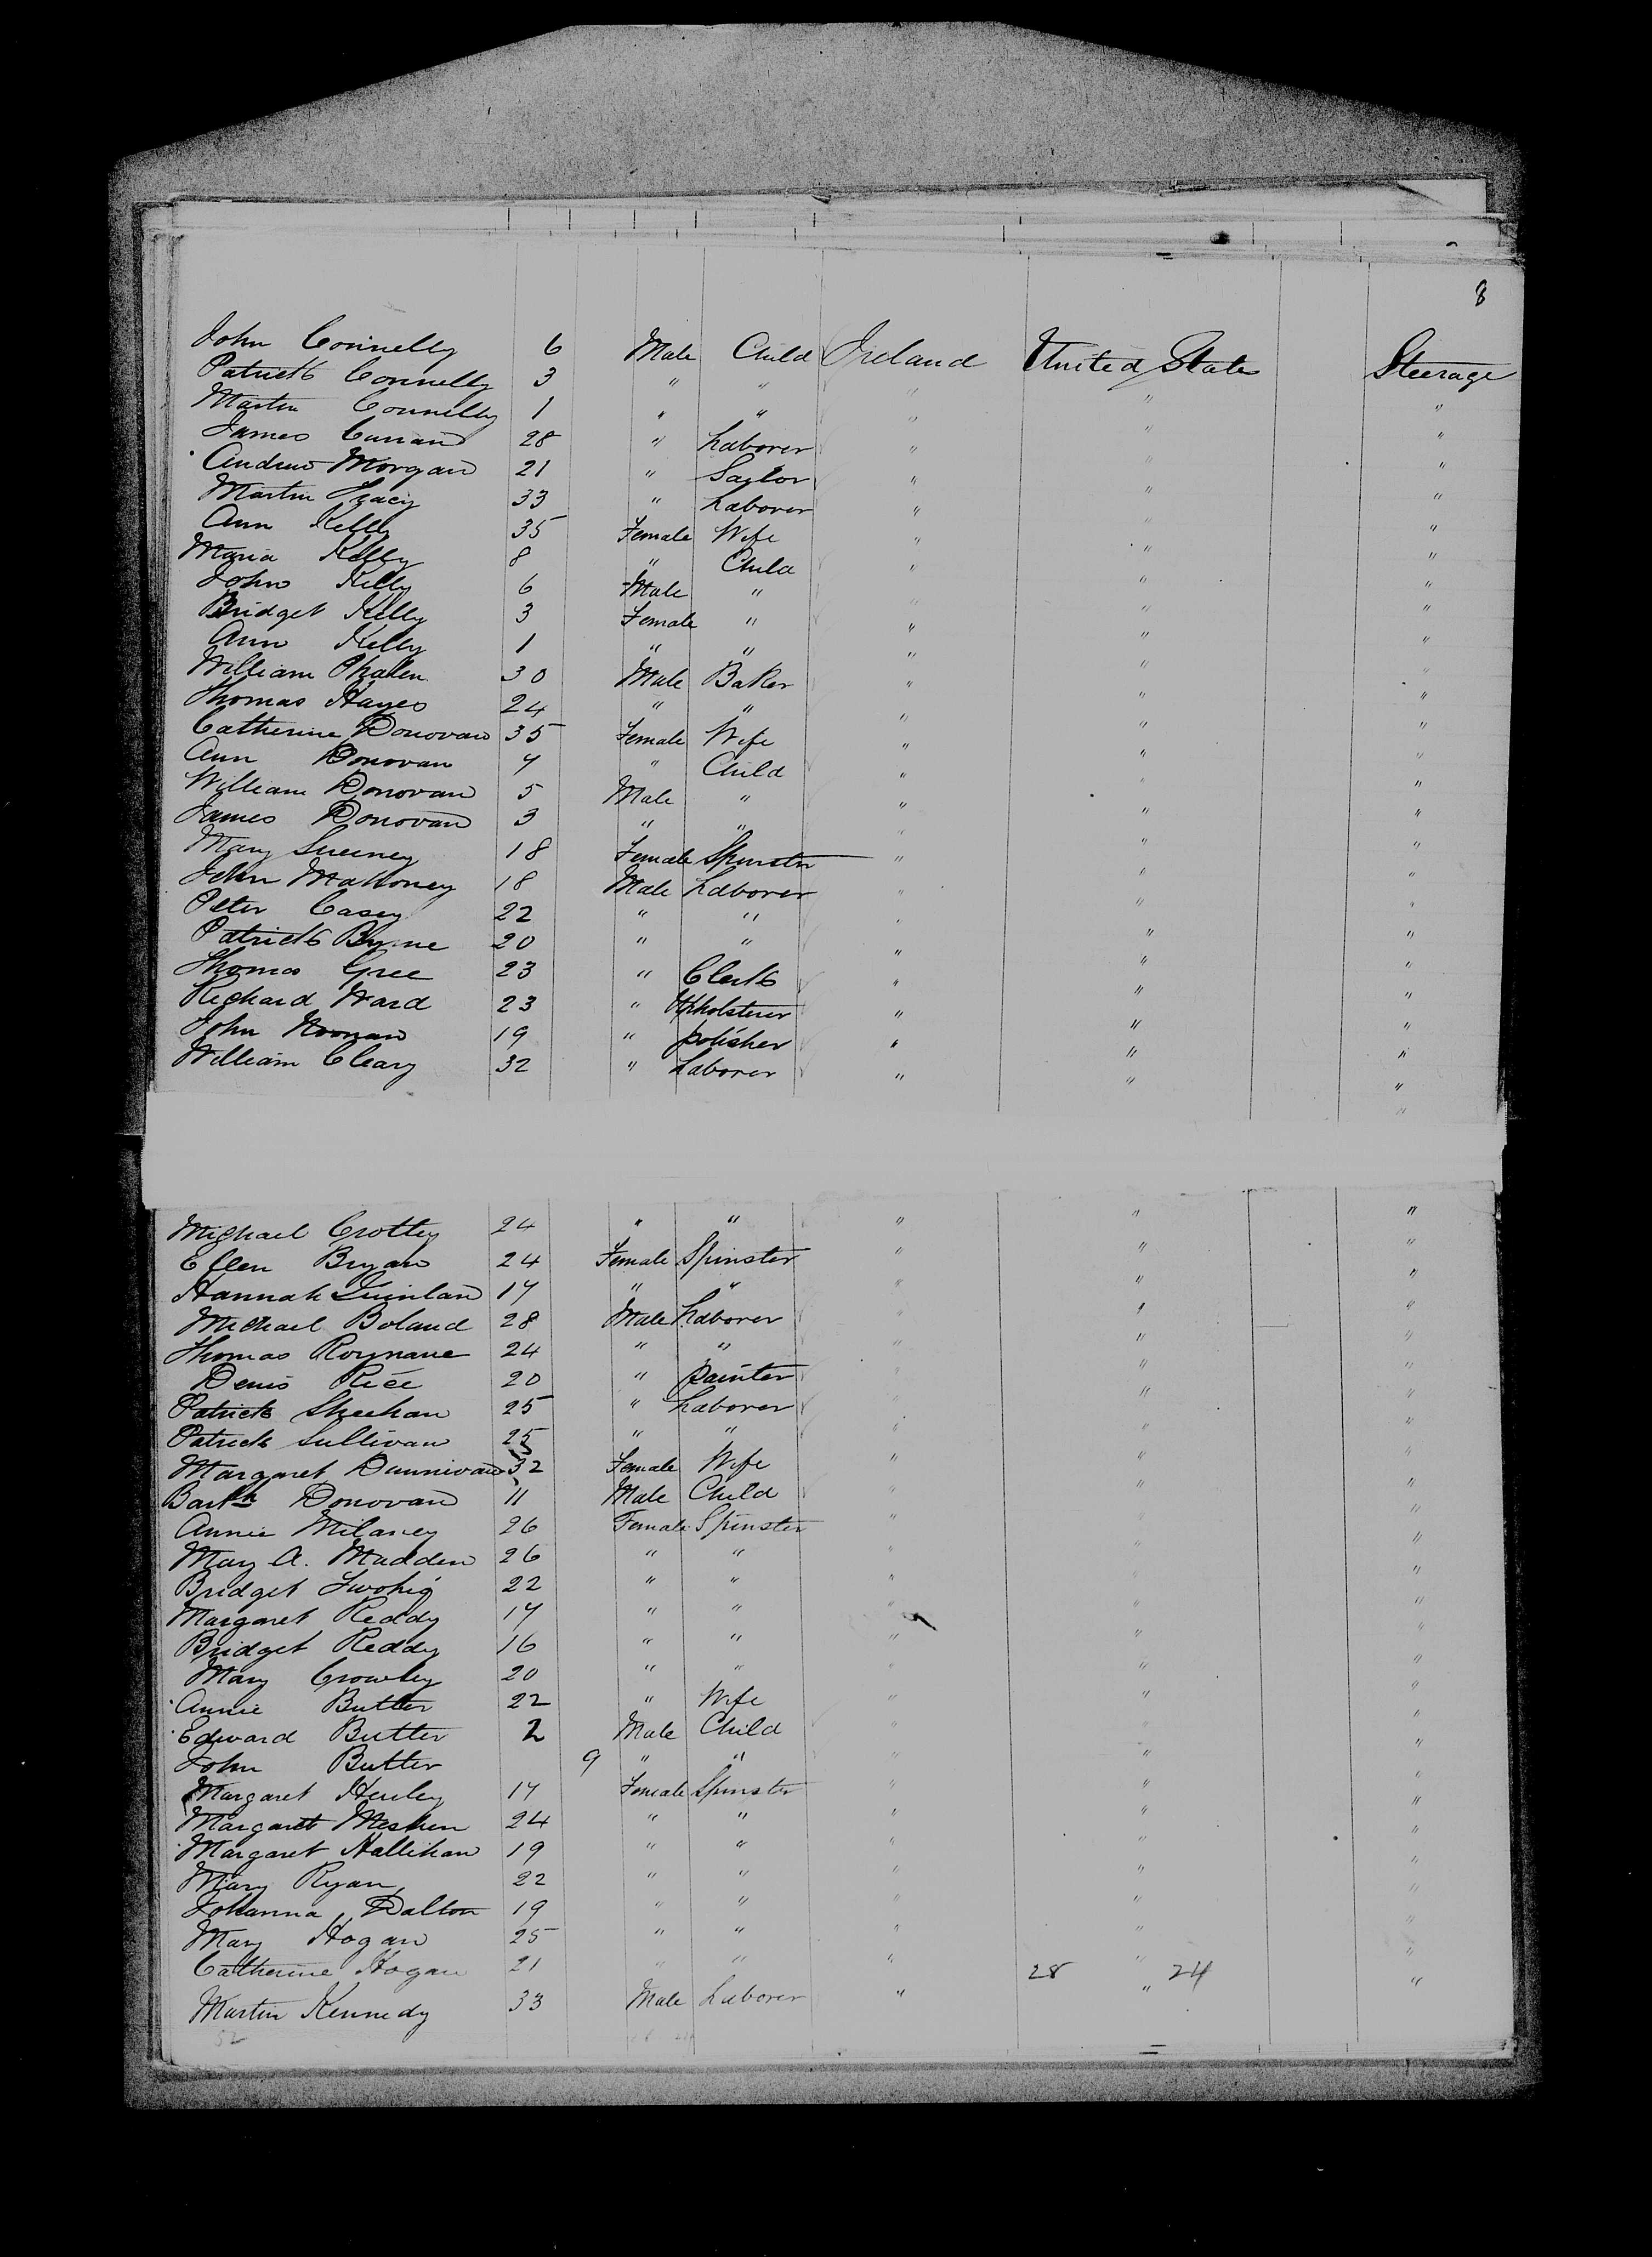 8
John Connelly 6 Male Child Ireland United States Steerage
Patrick Connelly 3 " " " " "
Martin Connelly 1 " " " " "
James Curran 28 " Laborer " " "
Andrew Morgan 21 " Saylor " " "
Martin Tracy 33 " Laborer " " "
Ann Kelly 35 Female Wife " " "
Maria Kelly 8 " Child " " "
John Kelly 6 Male " " " "
Bridget Kelly 3 Female " " " "
Ann Kelly 1 " " " " "
William Phalen 30 Male Baker " " "
Thomas Hayes 24 " " " " "
Catherine Donovan 35 Female Wife " " "
Ann Donovan 7 " Child " " "
William Donovan 5 Male " " " "
James Donovan 3 " " " " "
Mary Sweeney 18 Female Spinster " " "
John Mahoney 18 Male Laborer " " "
Peter Casey 22 " " " " "
Patrick Byrne 20 " " " " "
Thomas Gree 23 " Clerk " " "
Richard Ward 23 " Upholsterer " " "
John Noonan 19 " polisher " " "
William Cleary 32 " Laborer " " "
Michael Crotty 24 " " " " "
Ellen Bryan 24 Female Spinster " " "
Hannah Quinlan 17 " " " " "
Michael Boland 28 Male Laborer " " "
Thomas Roynane 24 " " " " "
Denis Rice 20 " painter " " "
Patrick Sheehan 25 " Laborer " " "
Patrick Sullivan 25 " " " " "
Margaret Dunnivan 32 Female Wife " " "
Barth Donovan 11 Male Child " " "
Annie Milaney 26 Female Spinster " " "
Mary A. Madden 26 " " " " "
Bridget Twohig 22 " " " " "
Margaret Reddy 17 " " " " "
Bridget Reddy 16 " " " " "
Mary Crowley 20 " " " " "
Annie Butler 22 " Wife " " "
Edward Butler 2 Male Child " " "
John Butler 9 " " " " "
Margaret Hurley 17 Female Spinster " " "
Margaret Mesken 24 " " " " "
Margaret Hallihan 19 " " " " "
Mary Ryan 22 " " " " "
Johanna Dalton 19 " " " " "
Mary Hogan 25 " " " " "
Catherine Hogan 21 " " " 28 " 24 "
Martin Kennedy 33 Male Laborer " " "
52